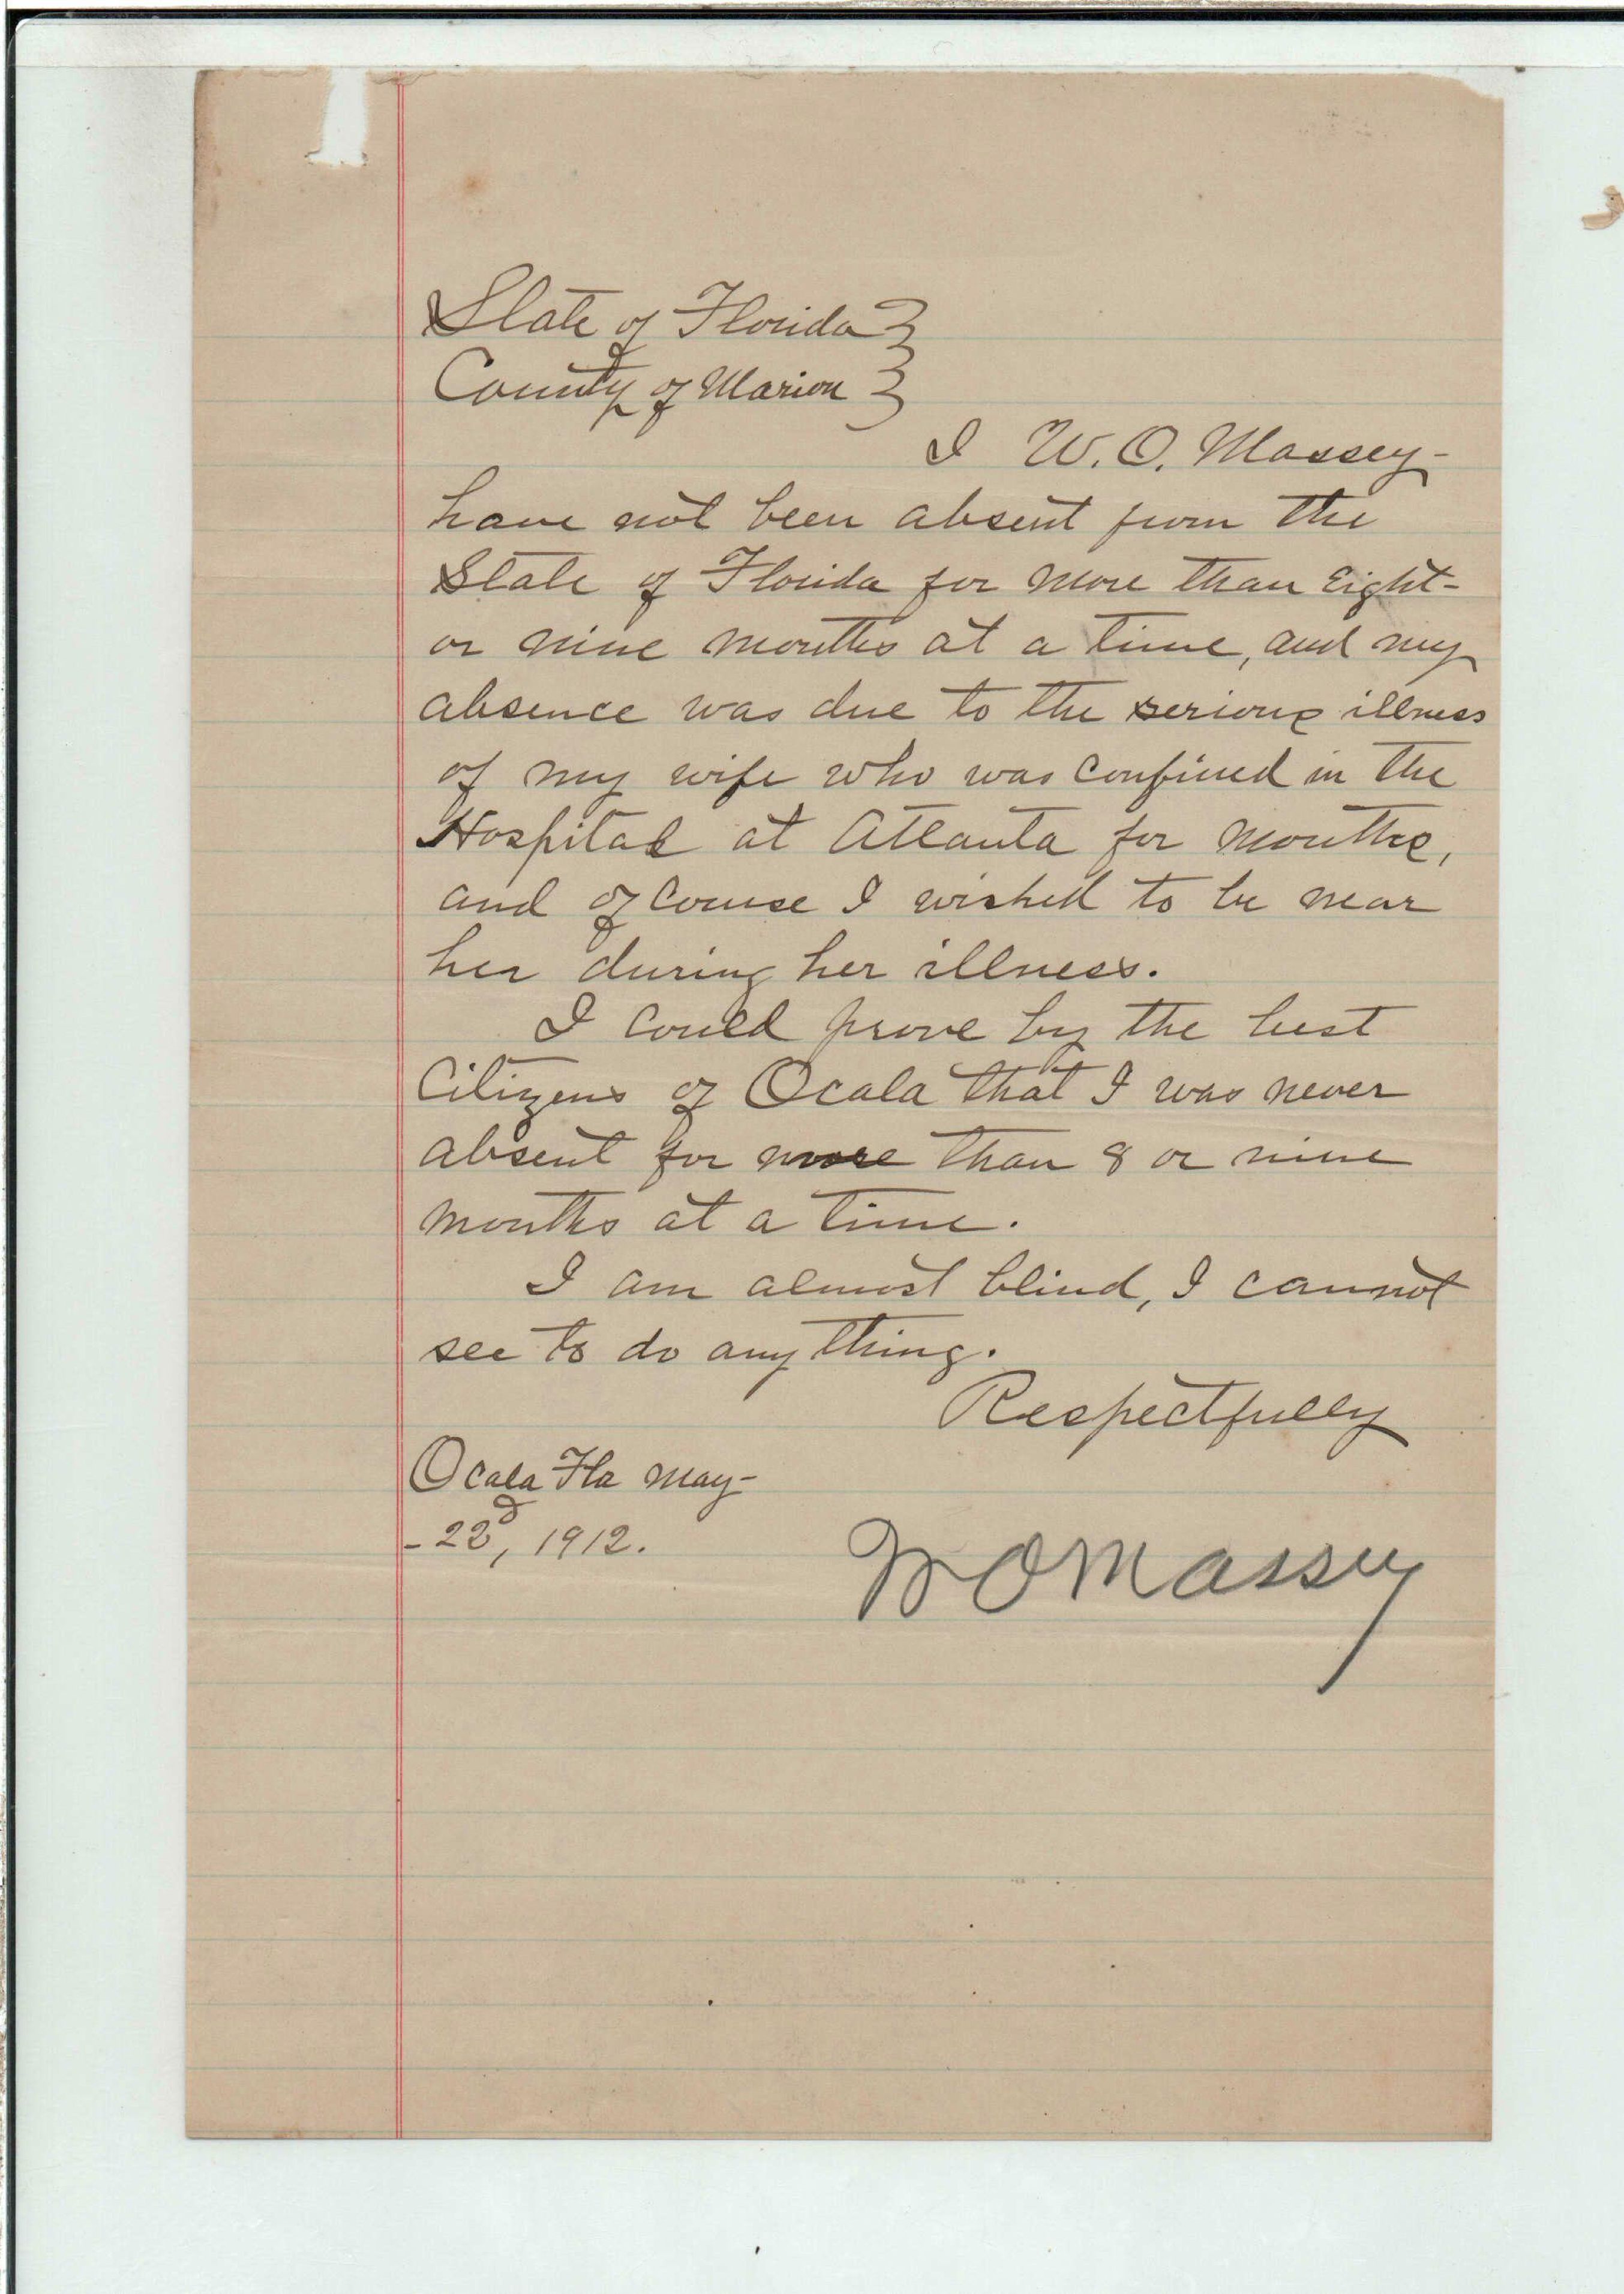 State of Florida }
County of Marion }
I W. O. Massey-
have not been absent from the
State of Florida for more than Eight-
or nine months at a time, and my
absence was due to the serious illness
of my wife who was confined in the
Hospital at Atlanta for months,
and of course I wished to be near
her during her illness.
I could prove by the best
Citizens of Ocala that I was never
absent for more than 8 or nine
months at a time.
I am almost blind, I cannot
see to do any thing.
Respectfully
Ocala Fla May-
-22d, 1912.
W O Massey